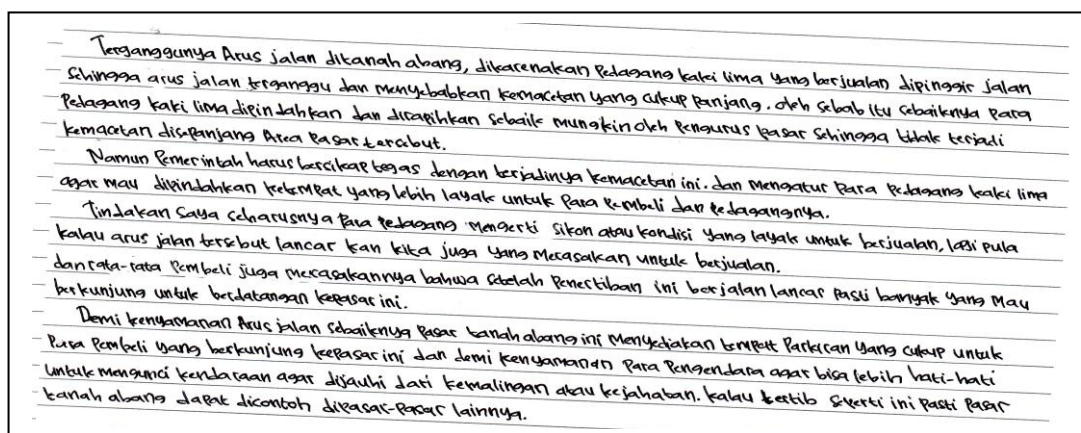 Terganggunya Arus jalan ditanah abang, dikarenakan Pedagang kaki lima yang berjualan dipinggir jalan
Sehingga arus jalan terganggu dan menyebabkan kemacetan yang cukup panjang. oleh sebab itu sebaiknya Para
Pedagang kaki lima dipindahkan dan dirapihkan sebaik mungkin oleh Pengurus pasar Sehingga tidak terjadi
kemacetan disepanjang Area Pasar tersebut.
Namun Pemerintah harus bersikap tegas dengan terjadinya kemacetan ini. dan mengatur Para Pedagang kaki lima
agar mau dipindahkan ketempat yang lebih layak untuk Para Pembeli dan Pedagangnya.
Tindakan Saya seharusnya Para Pedagang Mengerti Sikon atau kondisi yang layak untuk berjualan, lagi pula
kalau arus jalan tersebut lancar kan kita juga yang Merasakan untuk berjualan.
dan rata-rata Pembeli juga merasakannya bahwa setelah Penertiban ini berjalan lancar Pasti banyak yang Mau
berkunjung untuk berdatangan kepasar ini.
Demi kenyamanan Arus jalan sebaiknya Pasar tanah abang ini Menyediakan tempat Parkiran yang cukup untuk
Para Pembeli yang berkunjung kepasar ini dan demi kenyamanan Para Pengendara agar bisa lebih hati-hati
untuk mengunci kendaraan agar dijauhi dari kemalingan atau kejahatan. kalau tertib seperti ini Pasti Pasar
tanah abang dapat dicontoh dipasar-pasar lainnya.